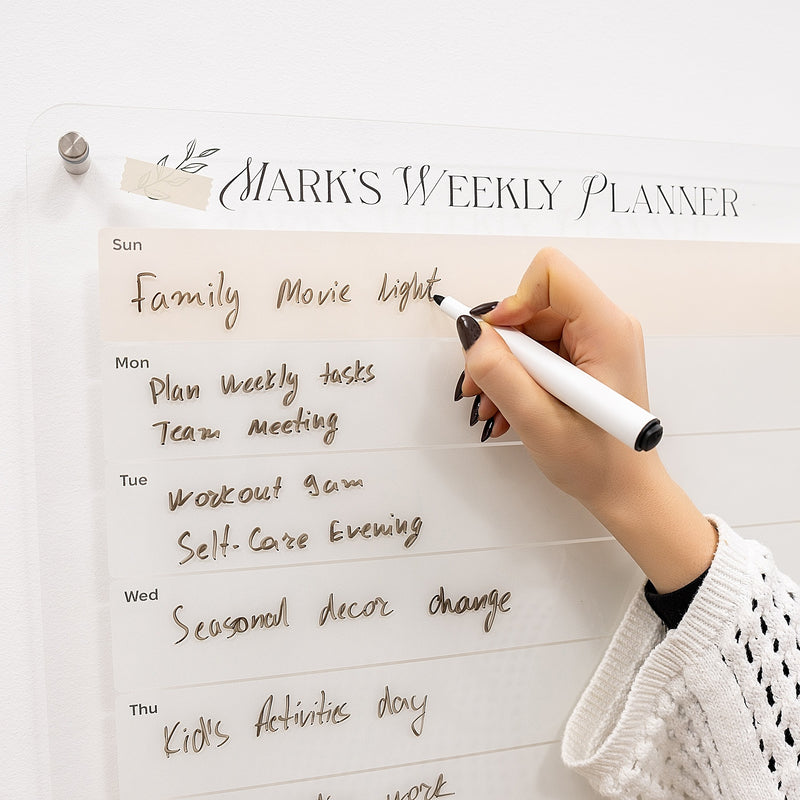 Mark's Weekly Planner
Sun
Family Movie light
Mon
Plan Weekly tasks
Team meeting
Tue
Workout 9am
Self-Care Evening
Wed
Seasonal decor change
Thu
Kid's Activities day
work